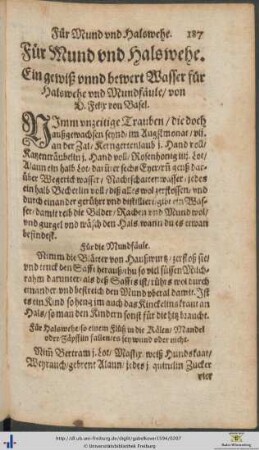 Für Mund vnd Halswehe. 187
Für Mund vnd Halswehe.
Ein gewiß vnnd bewert Wasser für
Halswehe vnd Mundfäule / von
D. Felix von Basel.
NImm vnzeitige Trauben / die doch
außgewachsen seynd / im Augstmonat / vij.
an der Zal / Kerngertenlaub j. Hand voll /
Katzentreubelin j. Hand voll / Rosenhonig iiij. Lot /
Alaun ein halb Lot / darüber sechs Eyerrü geüß dar-
über Wegerich wasser / Nachtschatten wasser / jedes
ein halb Becherlin voll / diß alles wol zerstossen / vnd
durch einander gerührt vnd distilliert / gibt ein Was-
ser / damit reib die Bilder / Rachen vnd Mund wol /
vnd gurgel vnd wäsch den Hals wann du es etwan
befindest.
Für die Mundfäule.
Nimm die Blätter von Haußwurtz / zerstoß sie /
vnd truck den Safft herauß / thu so viel süssen Milch-
rahm darunter / als deß Saffts ist / rührs wol durch
einander vnd bestreich den Mund vberal damit. Ist
es ein Kind so heng im auch das Rinckelin kraut an
Hals / so man den Kindern sonst für die hitz braucht.
Für Halswehe / so einem Flüß in die Kälen / Mandel
oder Zäpfflin fallen / es sey wund oder nicht.
Nim Bertram j. Lot / Mastix, weiß Hundskaat /
Weyrauch / gebrent Alaun / jedes j. quintlin Zucker
vier
http://dl.ub.uni-freiburg.de/diglit/gabelkover1594/0207
© Universitätsbibliothek Freiburg